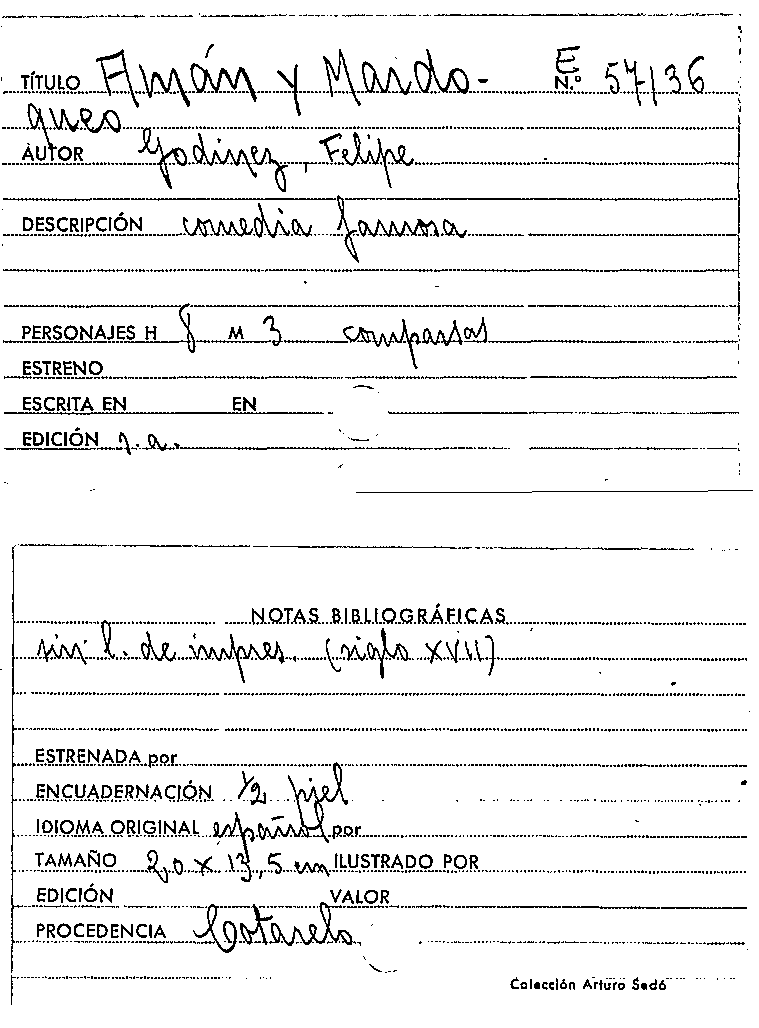 TÍTULO Amán y Mardo- E
N.º 57136
queo
AUTOR Godinez, Felipe
DESCRIPCIÓN comedia famosa
PERSONAJES H 8 M 3 comparsas
ESTRENO
ESCRITA EN EN
EDICIÓN s.a.
NOTAS BIBLIOGRÁFICAS
sin l. de impres. (siglo XVII)
ESTRENADA por
ENCUADERNACIÓN 1/2 piel
IDIOMA ORIGINAL español por
TAMAÑO 20 x 13,5 cm ILUSTRADO POR
EDICIÓN VALOR
PROCEDENCIA Cotarelo
Colección Arturo Sedó